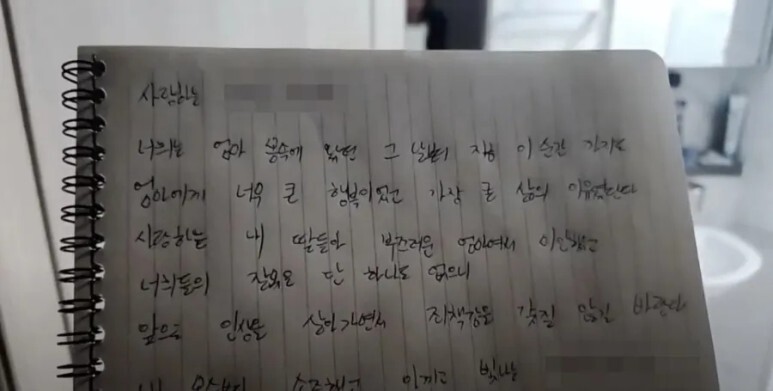 사랑하는
너희는 엄마 뱃속에 왔던 그 날부터 지금 이 순간 까지도
엄마에게 너무 큰 행복이었고 가장 큰 삶의 이유였단다
사랑하는 내 딸들아 부끄러운 엄마여서 미안하고
너희들의 잘못은 단 하나도 없으니
앞으로 인생을 살아가면서 죄책감을 갖질 않길 바란다
소중하고 아끼고 빛나는